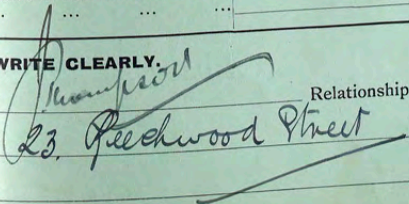 ... ... ...
WRITE CLEARLY.
Thompson
Relationship
23. Beechwood Street